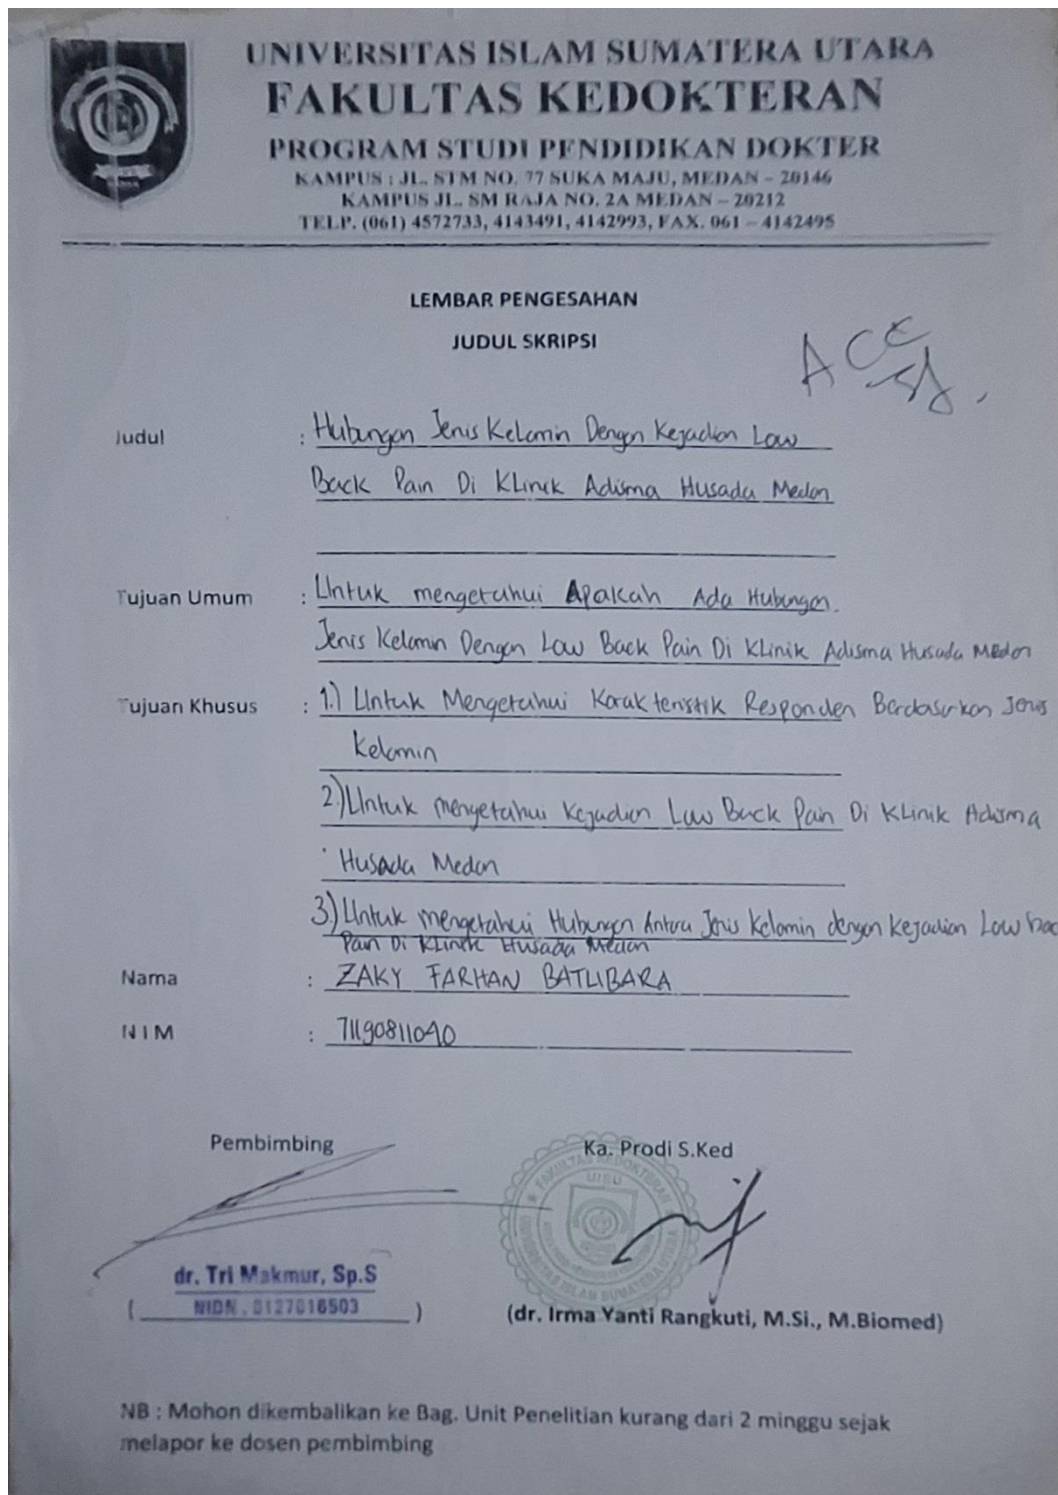 UNIVERSITAS ISLAM SUMATERA UTARA
FAKULTAS KEDOKTERAN
PROGRAM STUDI PENDIDIKAN DOKTER
KAMPUS : JL. STM NO. 77 SUKA MAJU, MEDAN – 20146
KAMPUS JL. SM RAJA NO. 2A MEDAN – 20212
TELP. (061) 4572733, 4143491, 4142993, FAX. 061 – 4142495
LEMBAR PENGESAHAN
JUDUL SKRIPSI
ACC
Judul : Hubungan Jenis Kelamin Dengan Kejadian Low
Back Pain Di Klinik Adisma Husada Medan
Tujuan Umum : Untuk mengetahui Apakah Ada Hubungan
Jenis Kelamin Dengan Low Back Pain Di Klinik Adisma Husada Medan
Tujuan Khusus : 1.) Untuk Mengetahui Karakteristik Responden Berdasarkan Jenis
Kelamin
2.) Untuk mengetahui Kejadian Low Back Pain Di Klinik Adisma
Husada Medan
3.) Untuk mengetahui Hubungan Antara Jenis Kelamin dengan Kejadian Low bac
Pain Di Klinik Husada Medan
Nama : ZAKY FARHAN BATUBARA
NIM : 71190811040
Pembimbing
Ka. Prodi S.Ked
FAKULTAS KEDOKTERAN
UISU
UNIVERSITAS ISLAM SUMATERA UTARA
dr. Tri Makmur, Sp.S
( NIDN . 0127016503 )
(dr. Irma Yanti Rangkuti, M.Si., M.Biomed)
NB : Mohon dikembalikan ke Bag. Unit Penelitian kurang dari 2 minggu sejak
melapor ke dosen pembimbing